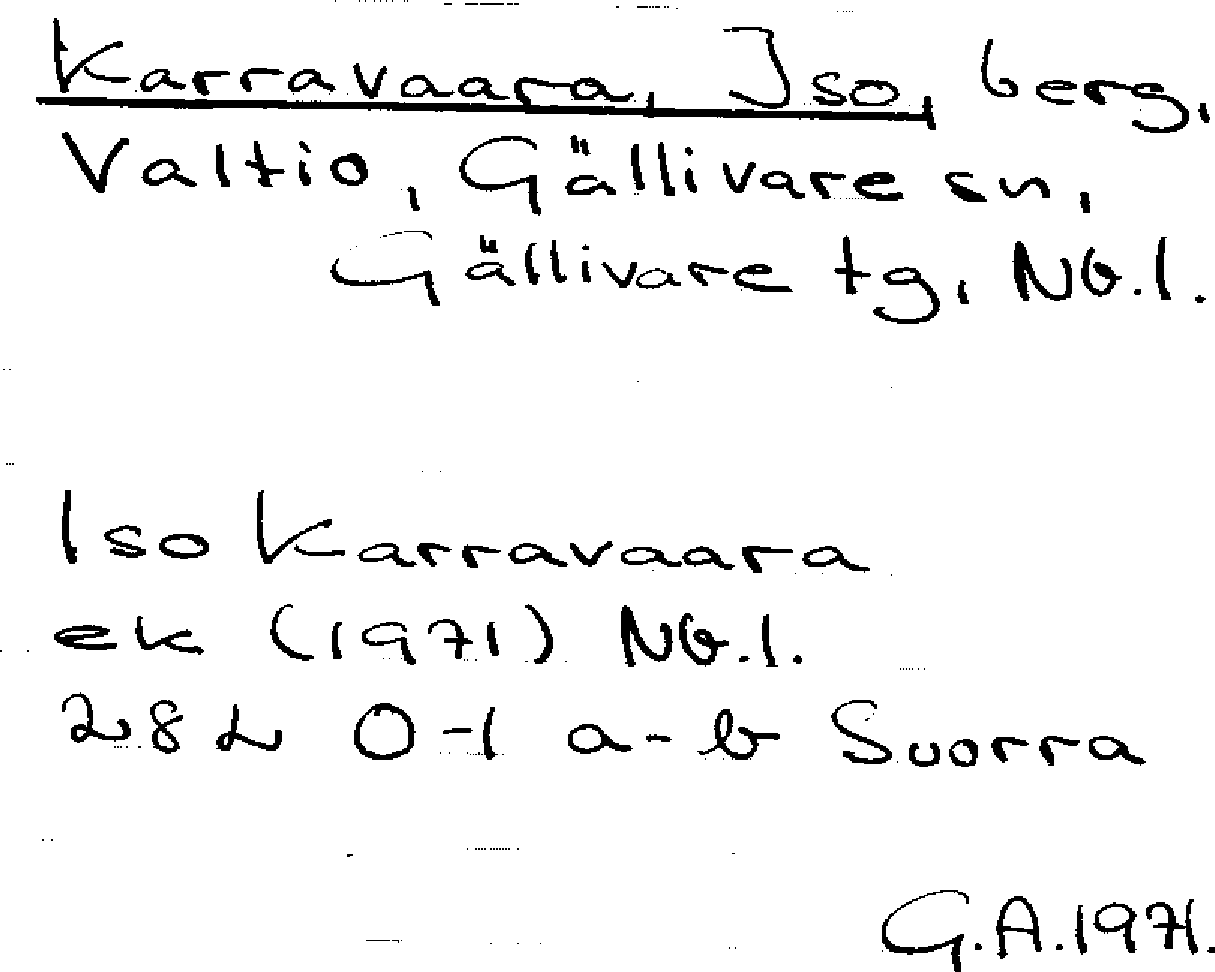 Karravaara, Iso, berg,
Valtio, Gällivare sn,
Gällivare tg, Nb.l.
Iso Karravaara
ek (1971) Nb.l.
28L 0-1 a-b Suorra
G.A.1971.